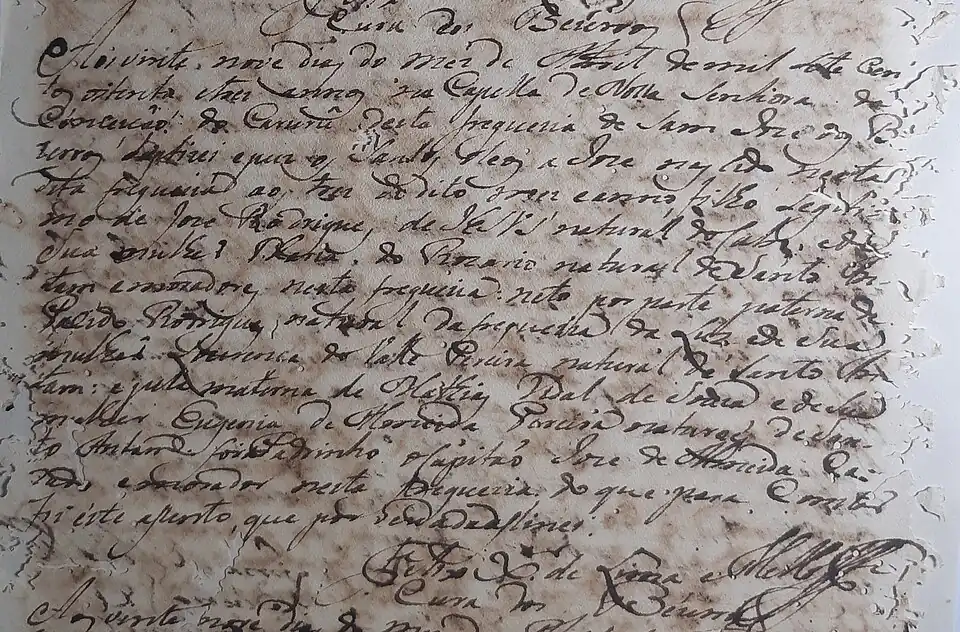 Cura dos Bezerros
Aos vinte, nove dias do mez de Abril de mil sete cen
tos oitenta e tres annos na Capella de Nossa Senhora da
Conceição do Caruru desta freguezia de Sam Joze dos Be
zerros baptizei e puz os Santos Oleos a Joze nascido nesta
dita freguezia ao tres do dito mez e anno filho legiti
mo de Joze Rodrigues de natural do Cabo, e de
sua mulher Maria do Rozario natural de Santo An
tam e moradores nesta freguezia: neto por parte paterna de
Rodrigues, natural da freguezia da Luz e de sua
mulher Lourença do Valle Pereira natural de Santo An
tam: e pela materna de Mathias Vidal de e de sua
mulher Eugenia de Almeida Pereira naturaes de San
to Antam foi Padrinho o Capitão Joze de Almeida Ca
e morador nesta Freguezia, do que para constar
fiz este acento, que por verdade asinei.
de Lima e Mello
Cura dos Bezerros
Aos vinte, nove dias do mez de